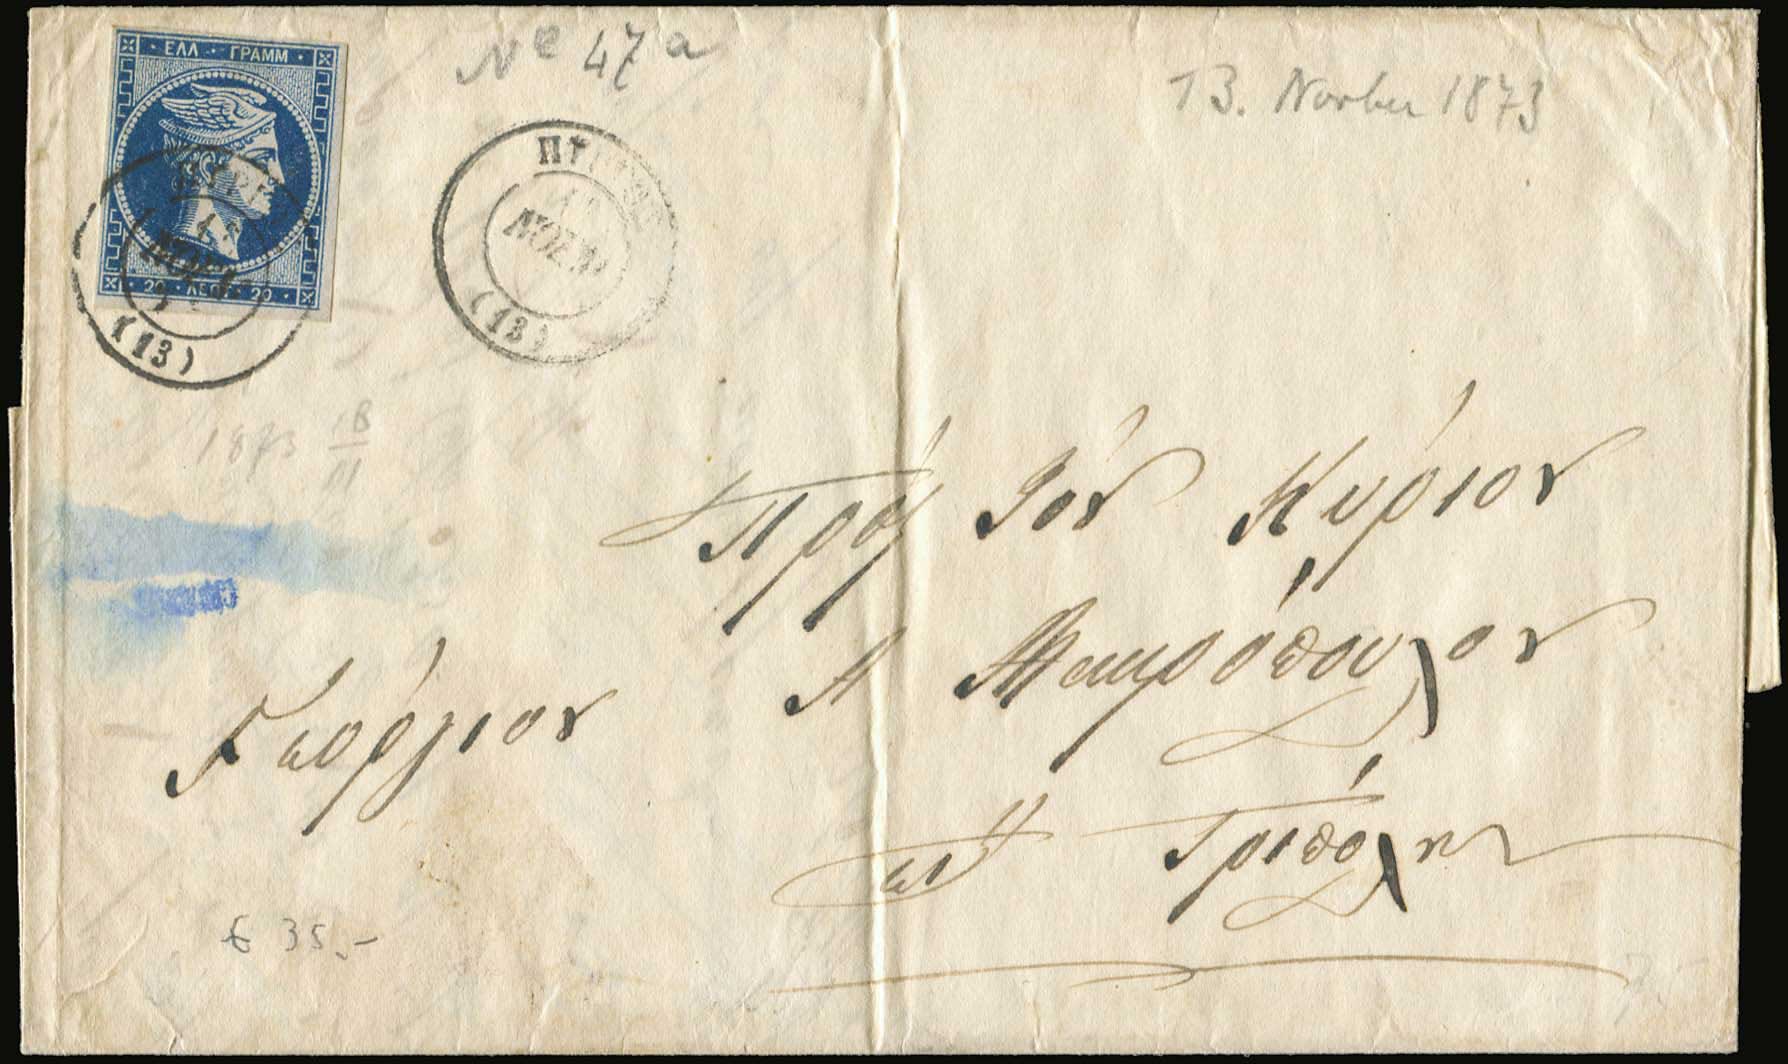 ΕΛΛ · ΓΡΑΜΜ
20 · ΛΕΠΤ · 20
(13)
Νº 47 a
(13)
13. Novber 1873
1873 18/11
Πρὸς Τὸν Κύριον
Γεώργιον Α Μακρόπουλον
εἰς Τρίπολιν
€ 35.-